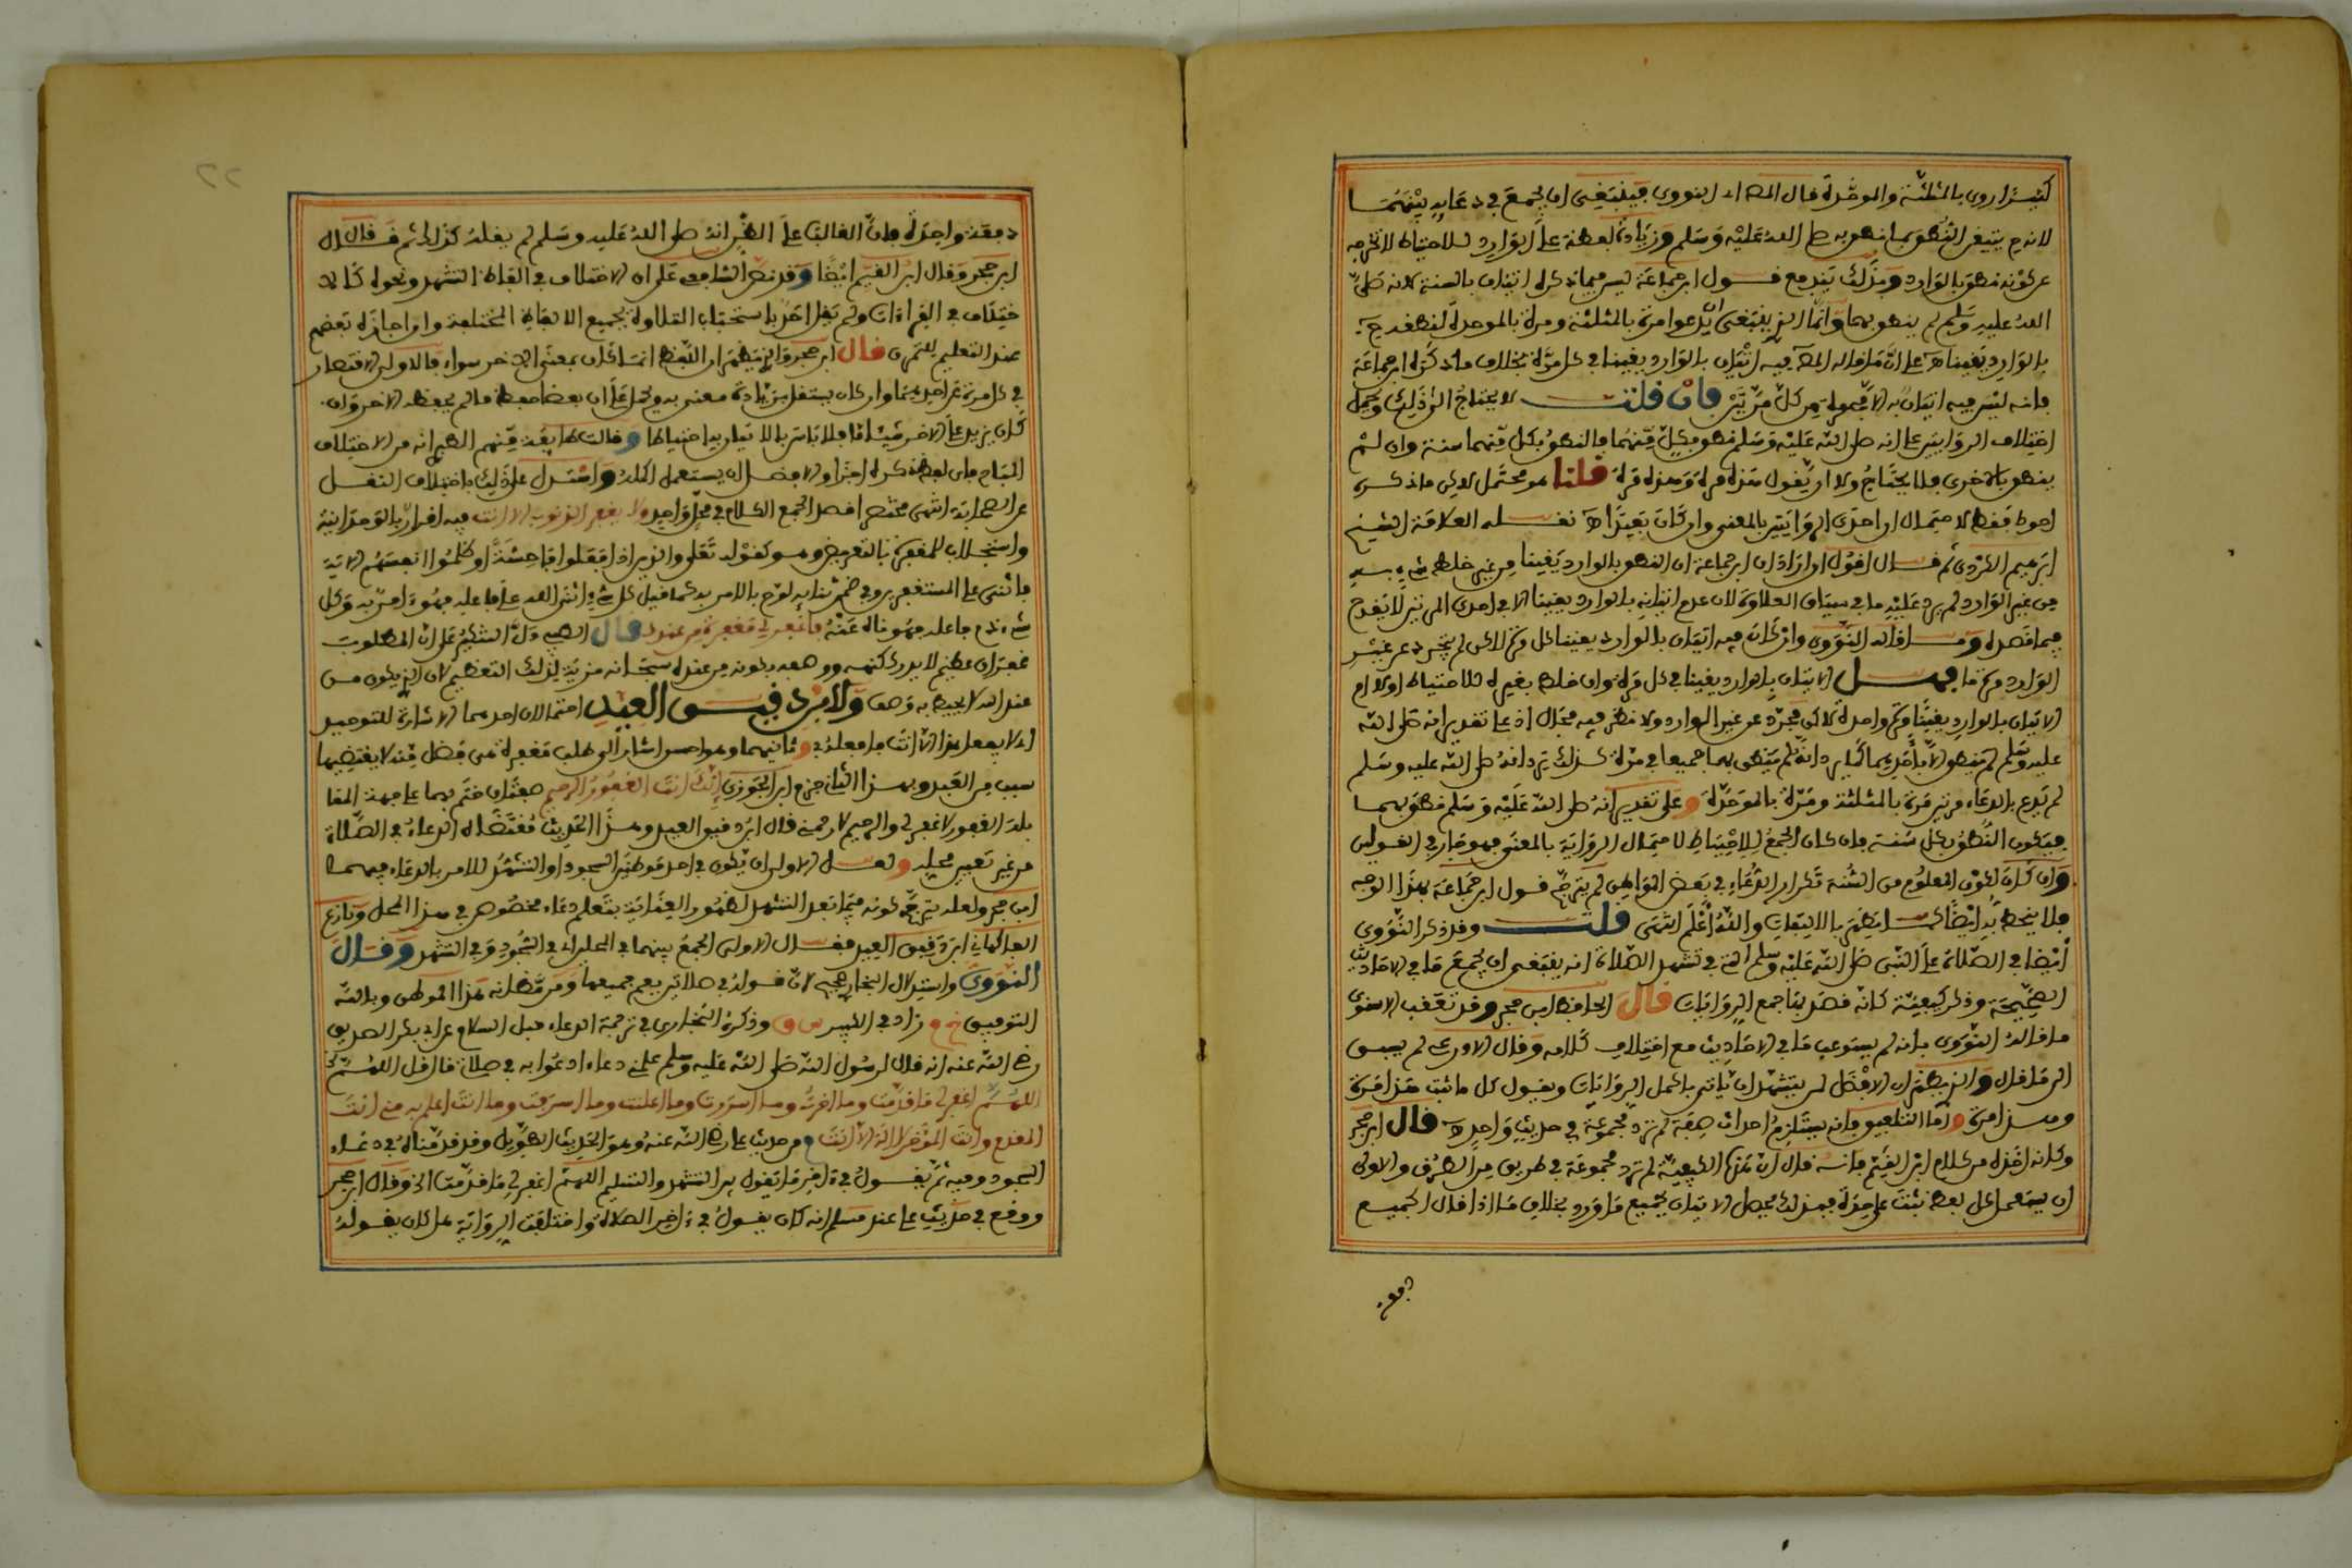 كثيرا روى بالمثلثة والموحدة قال النووي فينبغي ان يجمع في دعائه بينهما
لانه يتيقن النطق بما نطق به صلى الله عليه وسلم وزيادة لفظة على الوارد للاحتياط لا تخرجه
عن كونه نطق بالوارد وبذلك يندفع قول ابن جماعة ليس فيما ذكره اتيان بالسنة لانه صلى
الله عليه وسلم لم ينطق بهما وانما الذي ينبغي ان يدعو مرة بالمثلثة ومرة بالموحدة لنطق
بالوارد يقينا اه على ان ما قاله المص فيه اتيان بالوارد يقينا في كل مرة بخلاف ما ذكره ابن جماعة
فانه ليس فيه اتيان به الا في مرة من كل مرتين فان قلت لا يحتاج الى ذلك وحمل
اختلاف الروايتين على انه صلى الله عليه وسلم نطق بكل منهما فالنطق بكل منهما سنة وان لم
ينطق بالاخرى فلا يحتاج ولا ان يقول هذه مرة وهذه مرة قلنا هو محتمل لاكن ما ذكره
احوط فقط لاحتمال ان احدى الروايتين بالمعنى وان كان بعيدا اه نقله العلامة الشيخ
ابرهيم الكردي ثم قال اقول ان اراد ابن جماعة ان النطق بالوارد يقينا من غير خلط شيء به
من غير الوارد لم يرد عليه ما في سياق العلاوة لان عدم اتيانه بالوارد يقينا الا في احدى المرتين لا يقدح
فيما قصده وما قاله النووي وان كان فيه اتيان بالوارد يقينا كل مرة لاكن لم يتجرد عن غير
الوارد مرة ما فهل الاتيان بالوارد يقينا في كل مرة وان خلط بغيره للاحتياط اولى ام
الاتيان بالوارد يقينا ولو مرة واحدة لاكن مجرد عن غير الوارد ولا نظر فيه مجال اذ على تقدير انه صلى الله
عليه وسلم لم ينطق الا باحدهما كما يرد انه لم ينطق بهما جميعا في مرة كذلك يرد انه صلى الله عليه وسلم
لم يدع بالدعاء مرتين مرة بالمثلثة ومرة بالموحدة وعلى تقدير انه صلى الله عليه وسلم نطق بهما
فيكون النطق بكل سنة فان كان الجمع للاحتياط لاحتمال الرواية بالمعنى فهو جار في القولين
وان كان لكون المعلوم من السنة تكرار الدعاء في بعض المواطن لم يترجح قول ابن جماعة بهذا الوجه
فلا ينحط به ايضا كما يظهر بالالتفات والله اعلم انتهى قلت وقد ذكر النووي
ايضا في الصلاة على النبي صلى الله عليه وسلم التي في تشهد الصلاة انه ينبغي ان يجمع ما في الاحاديث
الصحيحة وذكر كيفية كانه قصد بها جمع الروايات قال الحافظ ابن حجر وقد تعقب الاسنوي
ما قاله النووي بانه لم يستوعب ما في الاحاديث مع اختلاف كلامه وقال الاذرعي لم يسبق
الى ما قال والذي يظهر ان الافضل لمن يتشهد ان ياتي باكمل الروايات ويقول كل ما ثبت هذا مرة
وهذا مرة واما التلفيق فانه يستلزم احداث صفة لم ترد مجموعة في حديث واحد اه قال ابن حجر
وكانه اخذه من كلام ابن القيم فانه قال ان هذه الكيفية لم ترد مجموعة في طريق من الطرق والاولى
ان يستعمل كل لفظ ثبت على حدة فبذلك يحصل الاتيان بجميع ما ورد بخلاف ما اذا قال الجميع
دفعة
دفعة واحدة فان الغالب على الظن انه صلى الله عليه وسلم لم يقله كذلك ثم قال
ابن حجر وقال ابن القيم ايضا وقد نص الشافعي على ان الاختلاف في الفاظ التشهد ونحوه كالا
ختلاف في القراءات ولم يقل احد باستحباب التلاوة بجميع الالفاظ المختلفة وان اجازه بعضهم
عند التعليم للتمرن قال ابن حجر والذي يظهر ان اللفظ ان كان بمعنى الاخر سواء فالاولى الاقتصار
في كل مرة على احدهما وان كان يستقل بزيادة معنى فيحمل على ان بعضا حفظ ما لم يحفظ الاخر وان
كان يزيد على الاخر شيئا ما فلا باس بالاتيان به احتياطا وقالت طائفة منهم الطبري انه من الاختلاف
المباح فاي لفظ ذكره اجزا والافضل ان يستعمل اكمله واستدل على ذلك باختلاف النقل
عن الصحابة انتهى مختصرا فصل لجمع الكلام في محل واحد ولا يغفر الذنوب الا انت فيه اقرار بالوحدانية
واستجلاب للمغفرة بالتعريض وهو كقوله تعلى والذين اذا فعلوا فاحشة او ظلموا انفسهم الاية
فاثنى على المستغفرين وفي ضمن ثنائه لوح بالامر به كما قيل كل شيء اثنى الله على فاعله فهو امر به وكل
شيء ذم فاعله فهو ناه عنه فاغفر لي مغفرة من عندك قال الطيبي دل التنكير على ان المطلوب
غفران عظيم لا يدرك كنهه ووصفه بكونه من عنده سبحانه مزية لذلك التعظيم لان الذي يكون من
عند الله لا يحيط به وصف ولابن دقيق العيد احتمالان احدهما الاشارة للتوحيد
اي لا يفعل هذا الا انت فافعله لي وثانيهما وهو احسن اشار الى طلب مغفرة من فضل منه لا يقتضيها
سبب من العبد وبهذا الثاني جزم ابن الجوزي انك انت الغفور الرحيم صفتان ختم بهما على جهة المقا
بلة الغفور لاغفر لي والرحيم لارحمني قال ابن دقيق العيد وهذا الحديث مقتضاه الدعاء في الصلاة
من غير تعيين محله ولعل الاولى ان يكون في احد موطنين السجود او التشهد للامر بالدعاء فيهما
ابن حجر ولعله يترجح كونه فيما بعد التشهد لظهور العناية بتعليم دعاء مخصوص في هذا المحل ونازع
الفاكهاني ابن دقيق العيد فقال الاولى الجمع بينهما في المحلين اي في السجود وفي التشهد وقال
النووي واستدلال البخاري صحيح لان قوله في صلاتي يعم جميعها ومن مظانه هذا الموطن وبالله
التوفيق خ م زاد في الكبير س ق وذكره البخاري في ترجمة الدعاء قبل السلام عن ابي بكر الصديق
رضي الله عنه انه قال لرسول الله صلى الله عليه وسلم علمني دعاء ادعو به في صلاتي قال قل اللهم
اللهم اغفر لي ما قدمت وما اخرت وما اسررت وما اعلنت وما اسرفت وما انت اعلم به مني انت
المقدم وانت المؤخر لا اله الا انت م من حديث علي رضي الله عنه وهو الحديث الطويل وقد قدمناه في دعاء
السجود وفيه ثم يقول في اخر ما يقول بين التشهد والتسليم اللهم اغفر لي ما قدمت الخ وقال ابن حجر
ووقع في حديث علي عند مسلم انه كان يقول في اخر الصلاة واختلفت الرواية هل كان يقوله